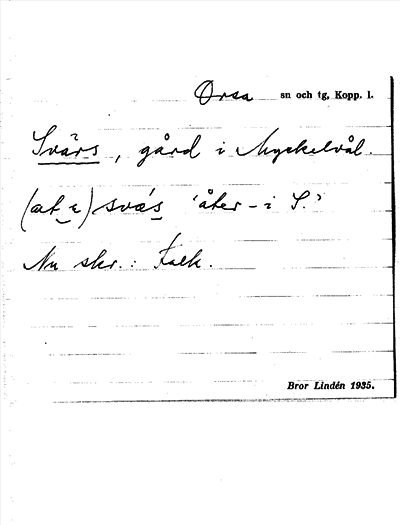 Orsa sn och tg, Kopp. l.
Svärs, gård i Myckelvål.
(at i) svás 'åter- i S.'
Nu skr.: Falk.
Bror Lindén 1935.